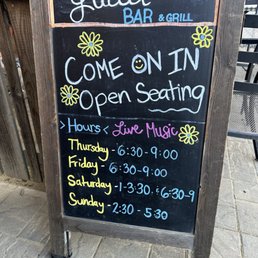 BAR & GRILL
COME ON IN
Open Seating
> Hours < Live Music
Thursday - 6:30-9:00
Friday - 6:30-9:00
Saturday - 1-3:30 & 6:30-9
Sunday - 2:30 - 5:30